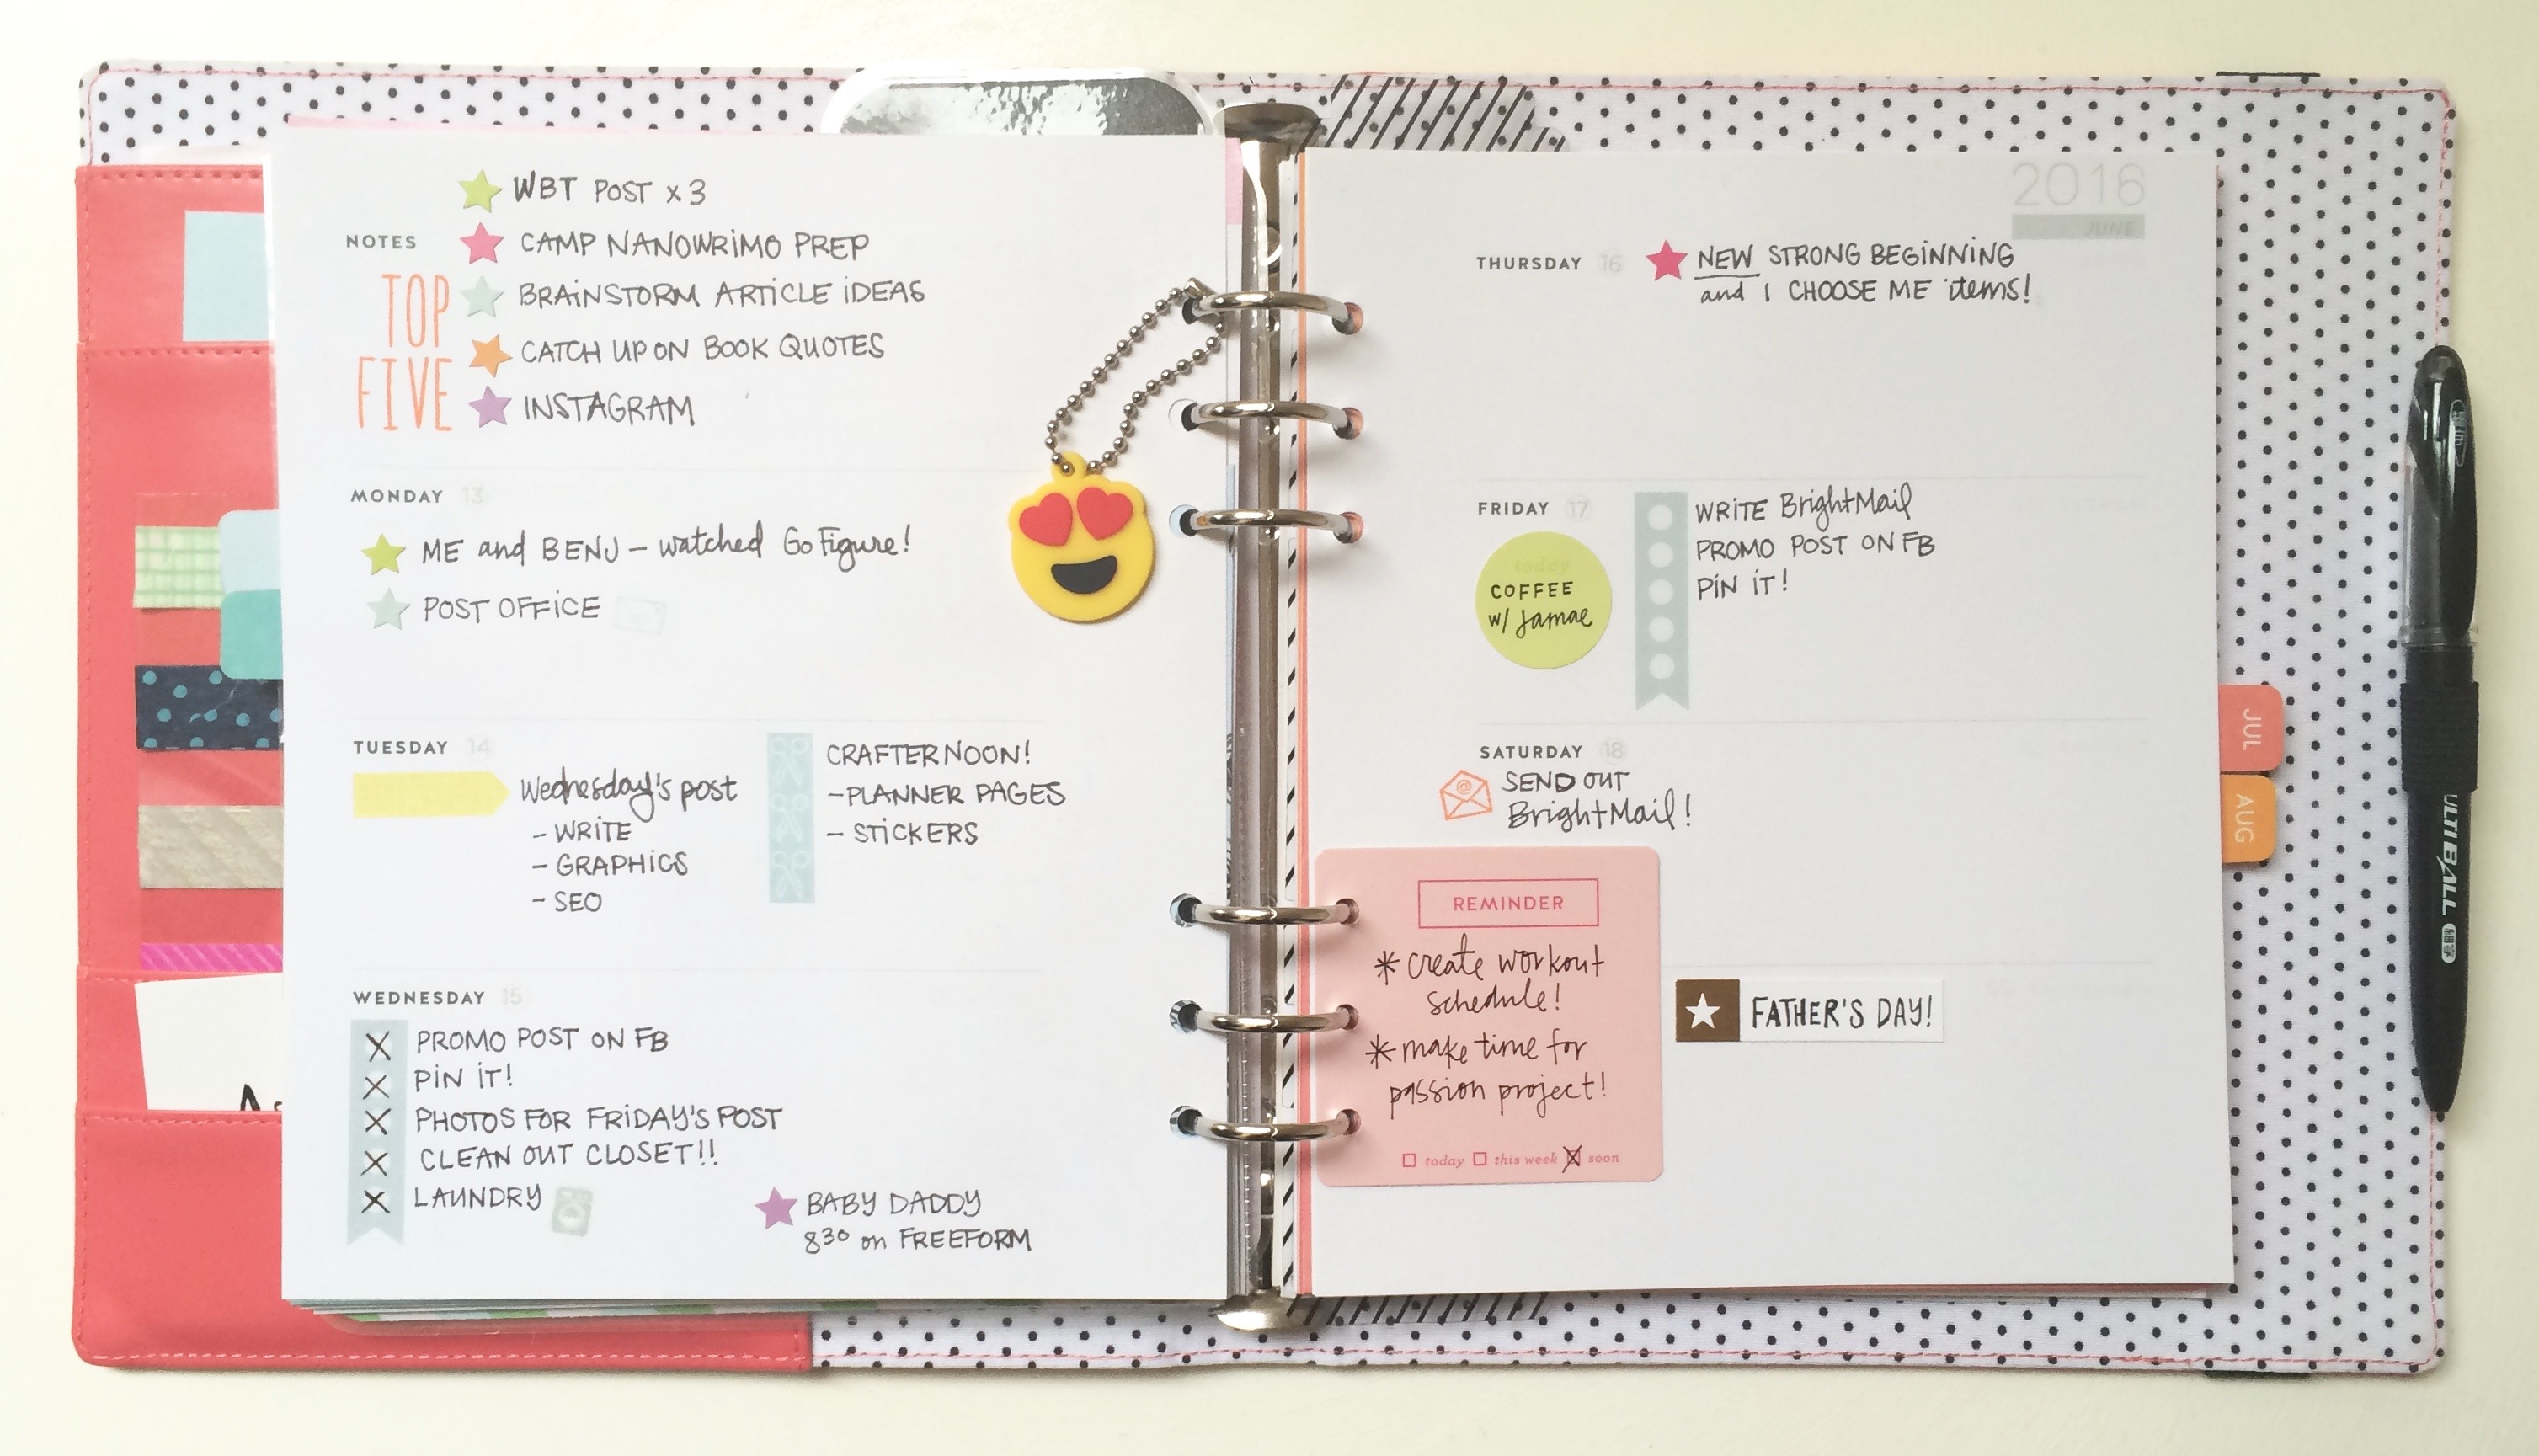 NOTES
TOP
FIVE
WBT POST x 3
CAMP NANOWRIMO PREP
BRAINSTORM ARTICLE IDEAS
CATCH UP ON BOOK QUOTES
INSTAGRAM
MONDAY 13
ME and BENJ - watched Go Figure!
POST OFFICE
TUESDAY 14
Wednesday's post
- WRITE
- GRAPHICS
- SEO
CRAFTERNOON!
- PLANNER PAGES
- STICKERS
WEDNESDAY 15
X PROMO POST ON FB
X PIN IT!
X PHOTOS FOR FRIDAY'S POST
X CLEAN OUT CLOSET!!
X LAUNDRY
BABY DADDY
8 30 on FREEFORM
2016
JUNE
THURSDAY 16
NEW STRONG BEGINNING
and I CHOOSE ME items!
FRIDAY 17
today
COFFEE
w/ Jamae
WRITE BrightMail
PROMO POST ON FB
PIN IT!
SATURDAY 18
@
SEND OUT
BrightMail!
REMINDER
* create workout
schedule!
* make time for
passion project!
today this week X soon
FATHER'S DAY!
JUL
AUG
ULTI BALL